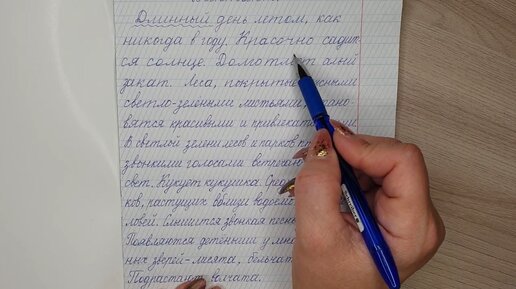 Длинный день летом, как
никогда в году. Красочно садит-
ся солнце. Долго тлеет алый
закат. Леса, покрытые
светло-зелеными листьями,
вятся красивыми и привлекат
В светлых зелени лесов и парков
звонкими голосами встречаю
свет. Кукует кукушка. Сре
ков, растущих вблизи водоем
ловей. Слышится звонкая песнь
Появляются детеныши у мно
ных зверей-лисята, бельчат
Подрастают волчата.